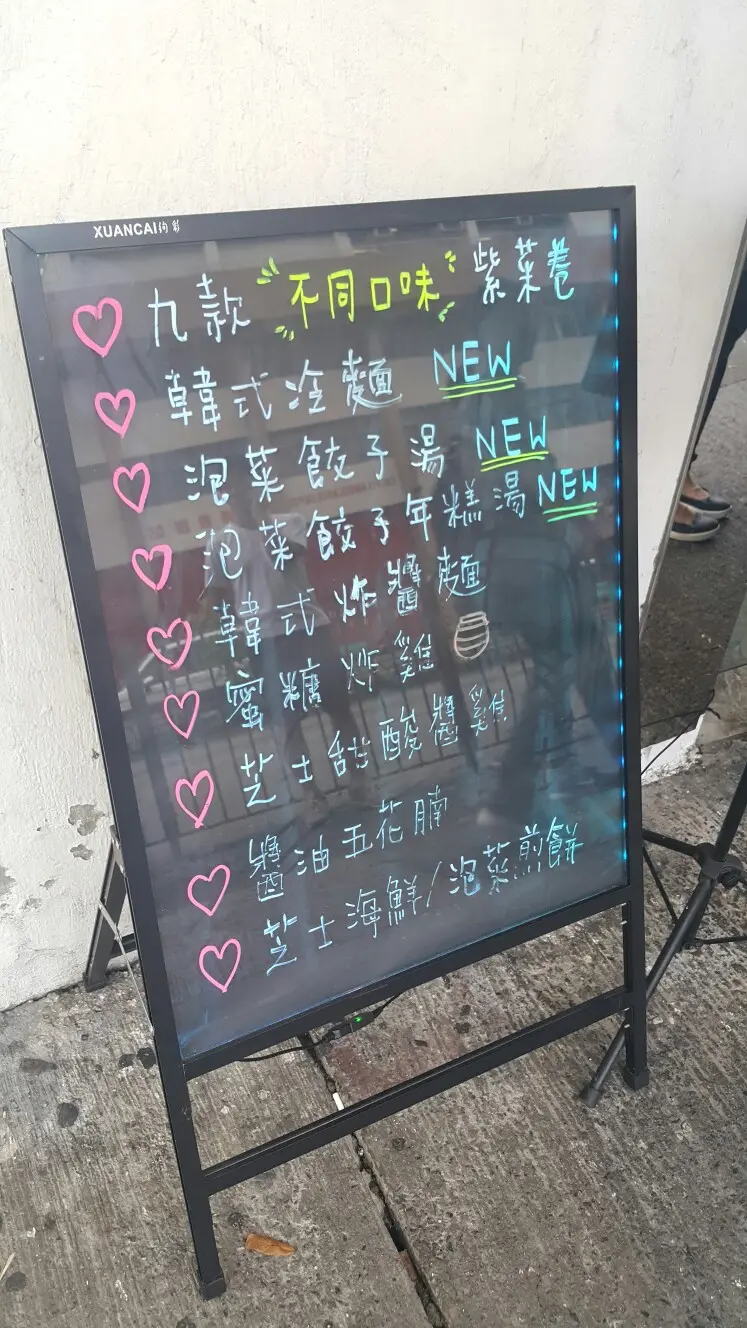 XUANCAI绚彩
九款"不同口味"紫菜卷
韓式冷麵 NEW
泡菜餃子湯 NEW
泡菜餃子年糕湯 NEW
韓式炸醬麵
蜜糖炸雞
芝士甜酸醬雞
醬油五花腩
芝士海鮮/泡菜煎餅